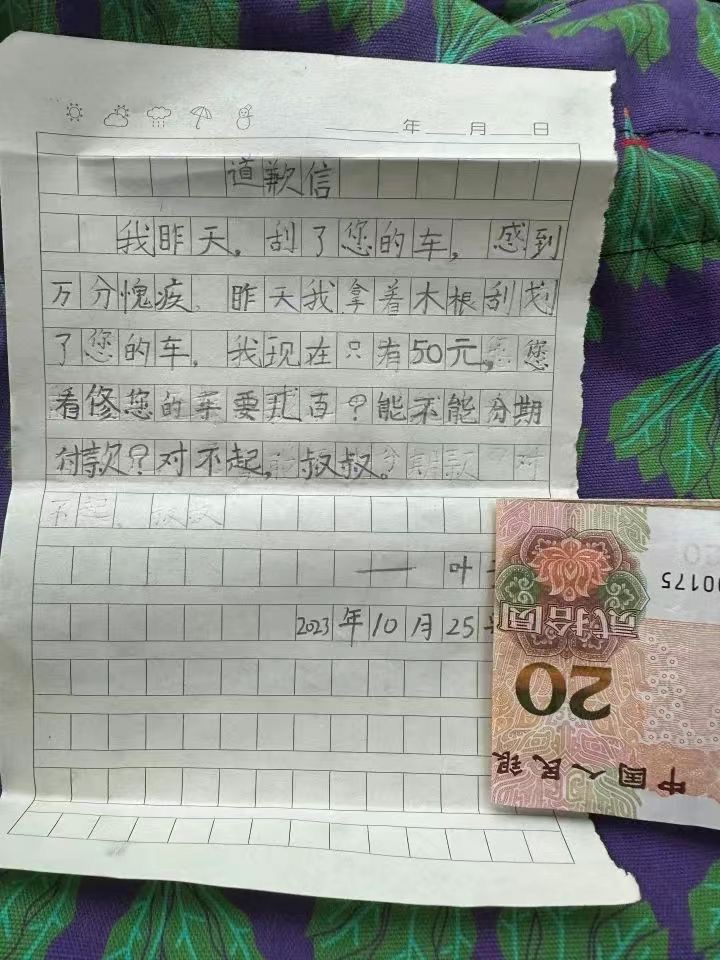 年 月 日
道歉信
我昨天,刮了您的车,感到
万分愧疚.昨天我拿着木根刮划
了您的车.我现在只有50元,您
看修您的车要百?能不能分期
付款?对不起,叔叔。
不起,叔叔
——叶
2023年10月25
00175
贰拾圆
20
中国人民银